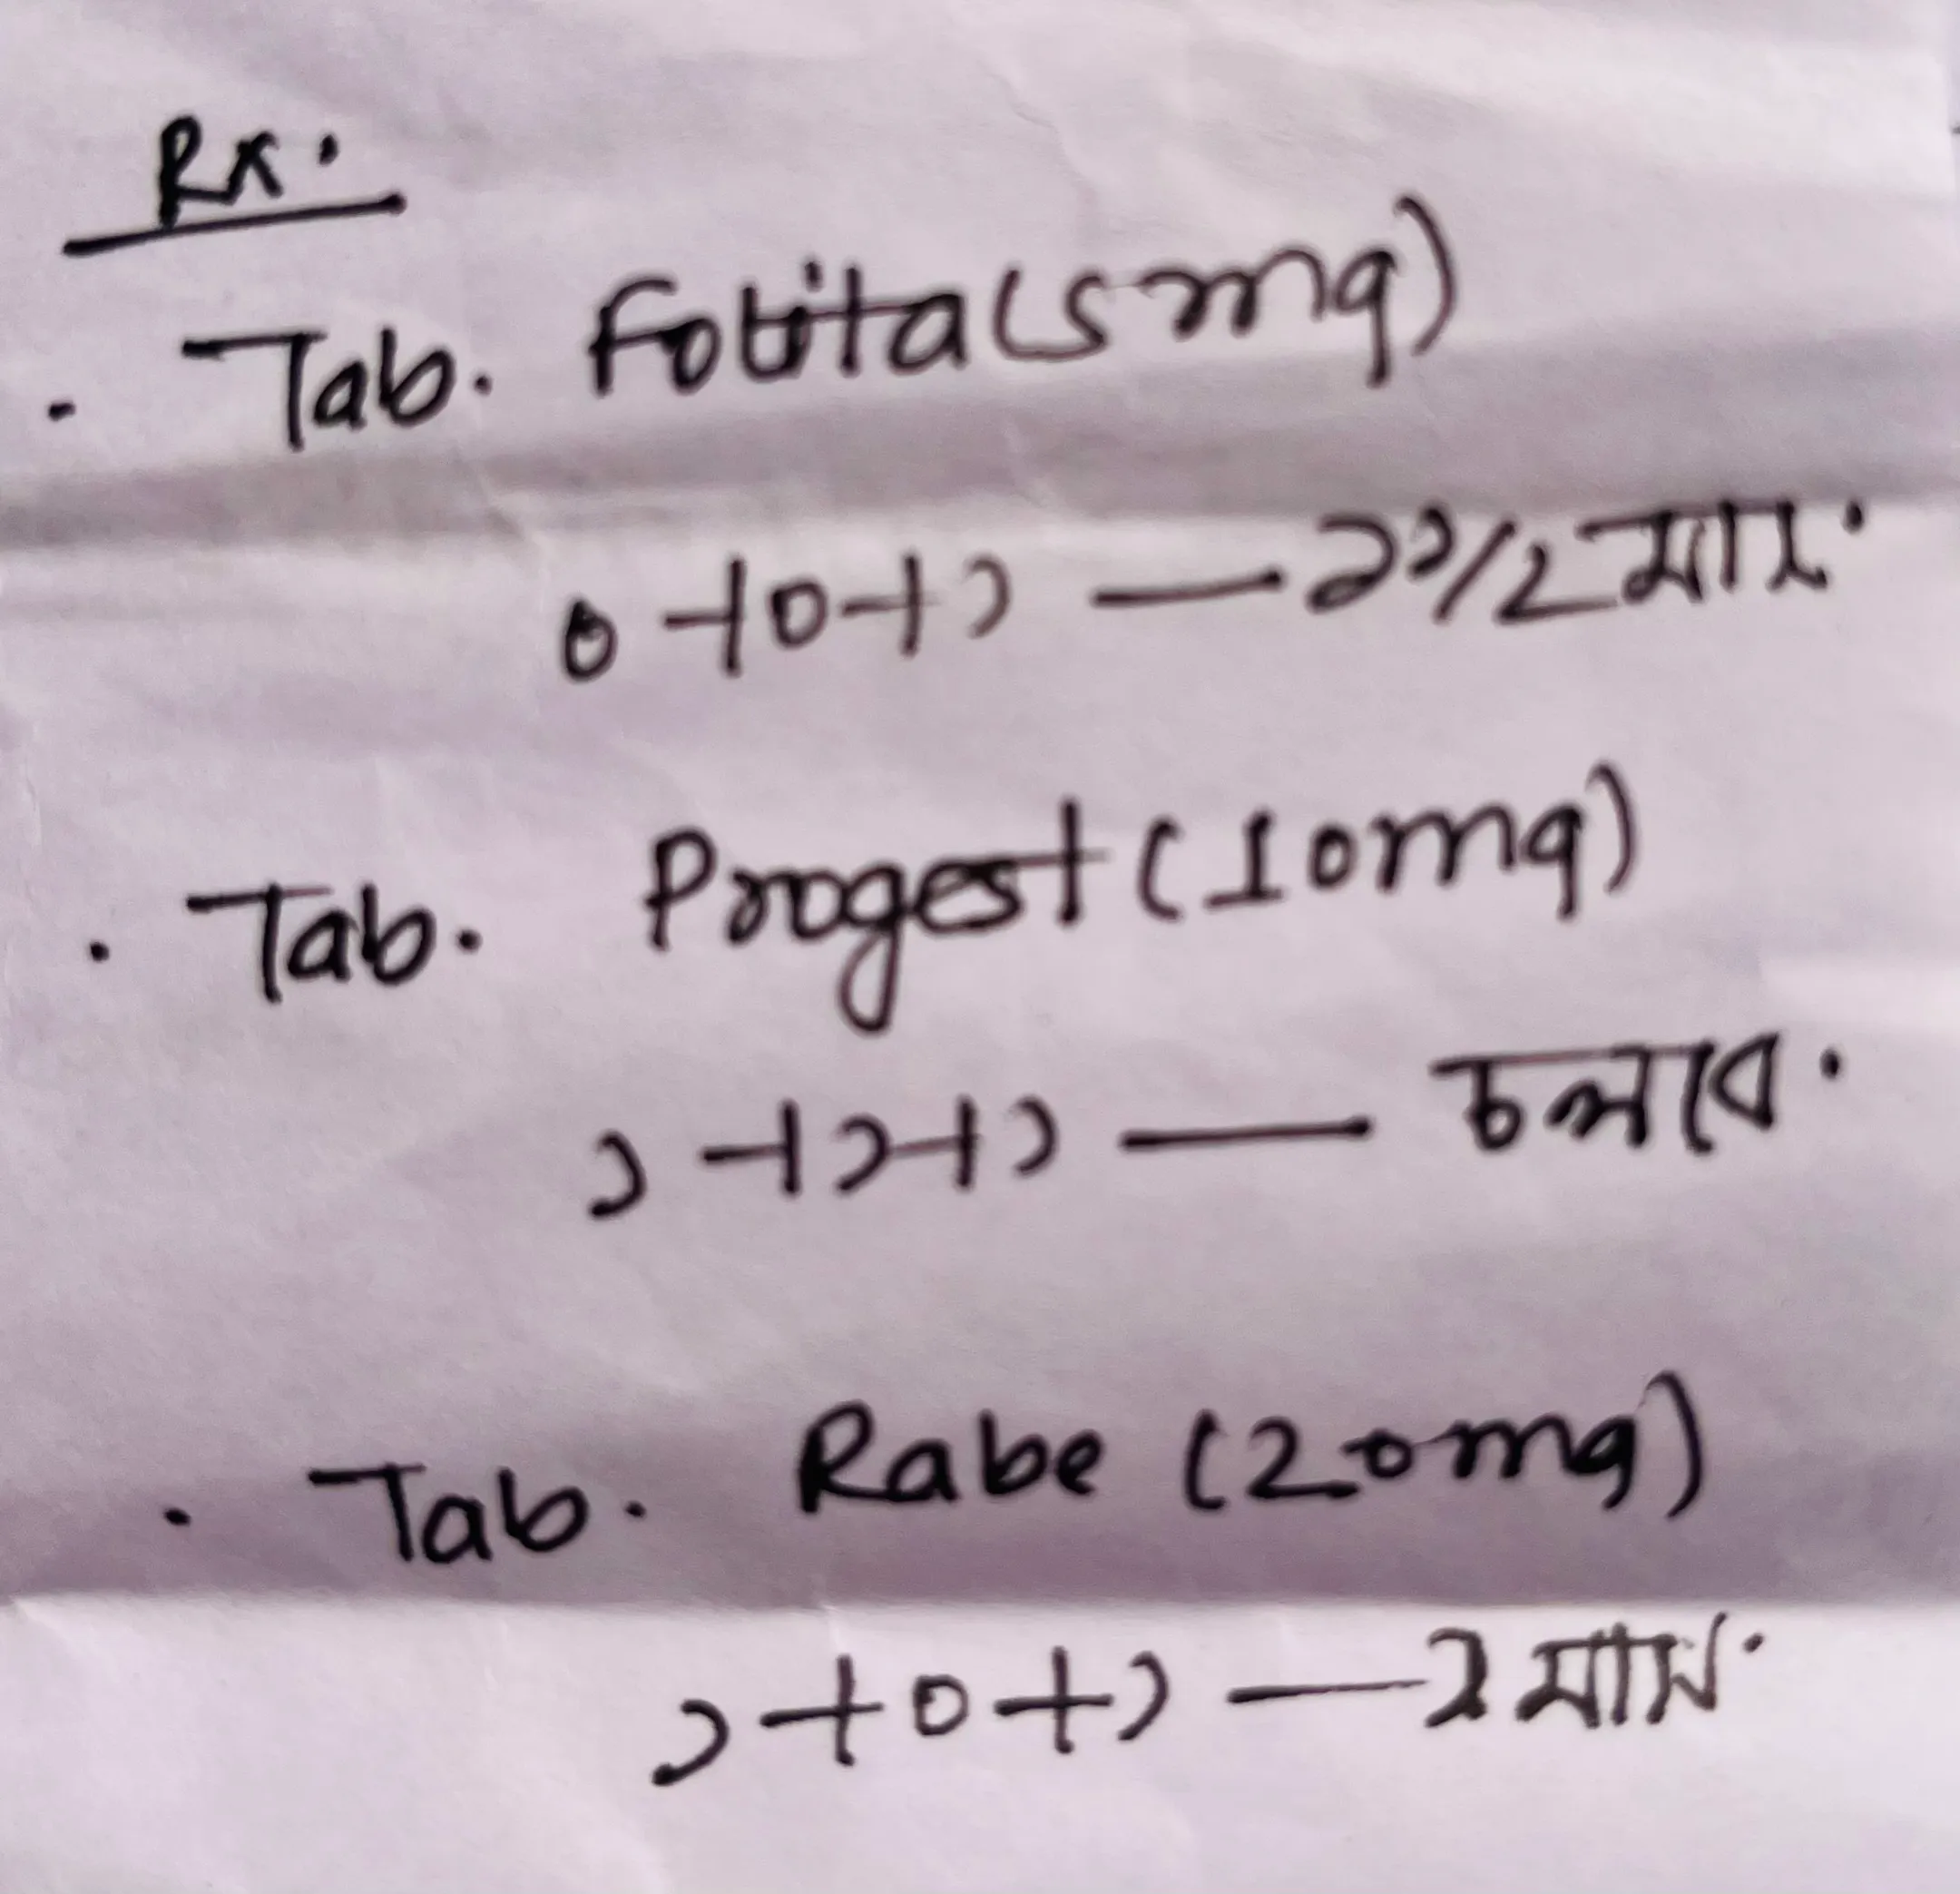 Rx.
. Tab. Folita (5mg)
০+০+১ — ১ ১/২ মাস.
. Tab. Progest (10mg)
১+১+১ — চলবে.
. Tab. Rabe (20mg)
১+০+১ — ২ মাস.